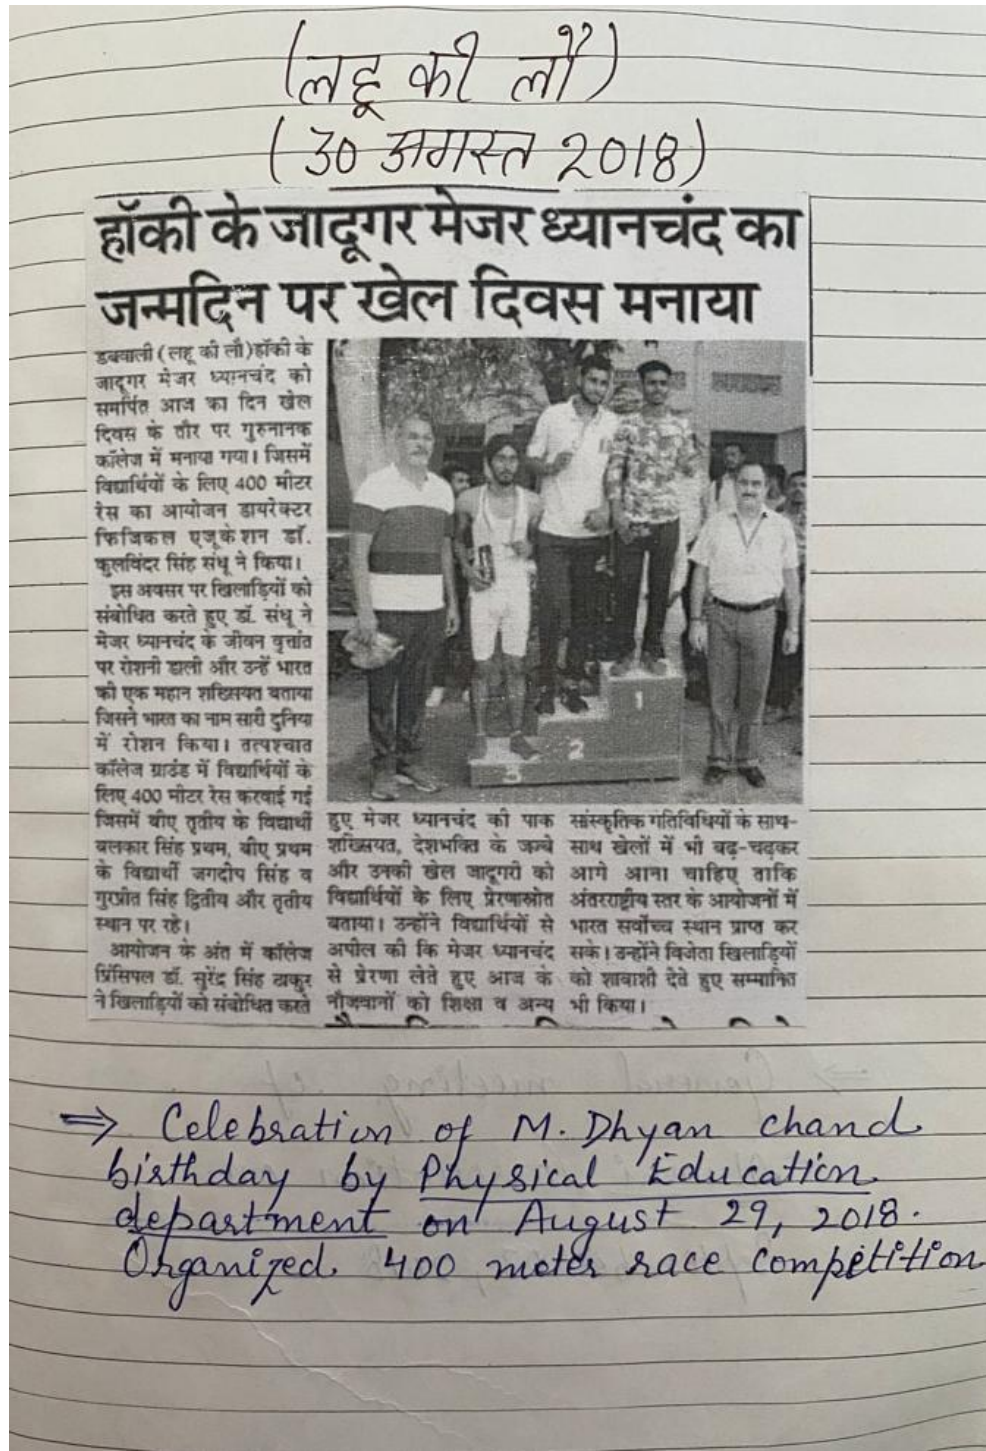 (लहू की लौ)
(30 अगस्त 2018)
हॉकी के जादूगर मेजर ध्यानचंद का
जन्मदिन पर खेल दिवस मनाया
डबवाली (लहू की लौ)हॉकी के
जादूगर मेजर ध्यानचंद को
समर्पित आज का दिन खेल
दिवस के तौर पर गुरुनानक
कॉलेज में मनाया गया। जिसमें
विद्यार्थियों के लिए 400 मीटर
रेस का आयोजन डायरेक्टर
फिजिकल एजूकेशन डॉ.
कुलविंदर सिंह संधू ने किया।
इस अवसर पर खिलाड़ियों को
संबोधित करते हुए डॉ. संधू ने
मेजर ध्यानचंद के जीवन वृत्तांत
पर रोशनी डाली और उन्हें भारत
की एक महान शख्सियत बताया
जिसने भारत का नाम सारी दुनिया
में रोशन किया। तत्पश्चात
कॉलेज ग्राउंड में विद्यार्थियों के
लिए 400 मीटर रेस करवाई गई
जिसमें बीए तृतीय के विद्यार्थी
बलकार सिंह प्रथम, बीए प्रथम
के विद्यार्थी जगदीप सिंह व
गुरप्रीत सिंह द्वितीय और तृतीय
स्थान पर रहे।
आयोजन के अंत में कॉलेज
प्रिंसिपल डॉ. सुरेंद्र सिंह ठाकुर
ने खिलाड़ियों को संबोधित करते
हुए मेजर ध्यानचंद की पाक
शख्सियत, देशभक्ति के जज्बे
और उनकी खेल जादूगरी को
विद्यार्थियों के लिए प्रेरणास्रोत
बताया। उन्होंने विद्यार्थियों से
अपील की कि मेजर ध्यानचंद
से प्रेरणा लेते हुए आज के
नौजवानों को शिक्षा व अन्य
सांस्कृतिक गतिविधियों के साथ-
साथ खेलों में भी बढ़-चढ़कर
आगे आना चाहिए ताकि
अंतरराष्ट्रीय स्तर के आयोजनों में
भारत सर्वोच्च स्थान प्राप्त कर
सके। उन्होंने विजेता खिलाड़ियों
को शाबाशी देते हुए सम्मानित
भी किया।
1
2
3
⇒ Celebration of M. Dhyan chand
birthday by Physical Education
department on August 29, 2018.
Organized 400 meter race competition